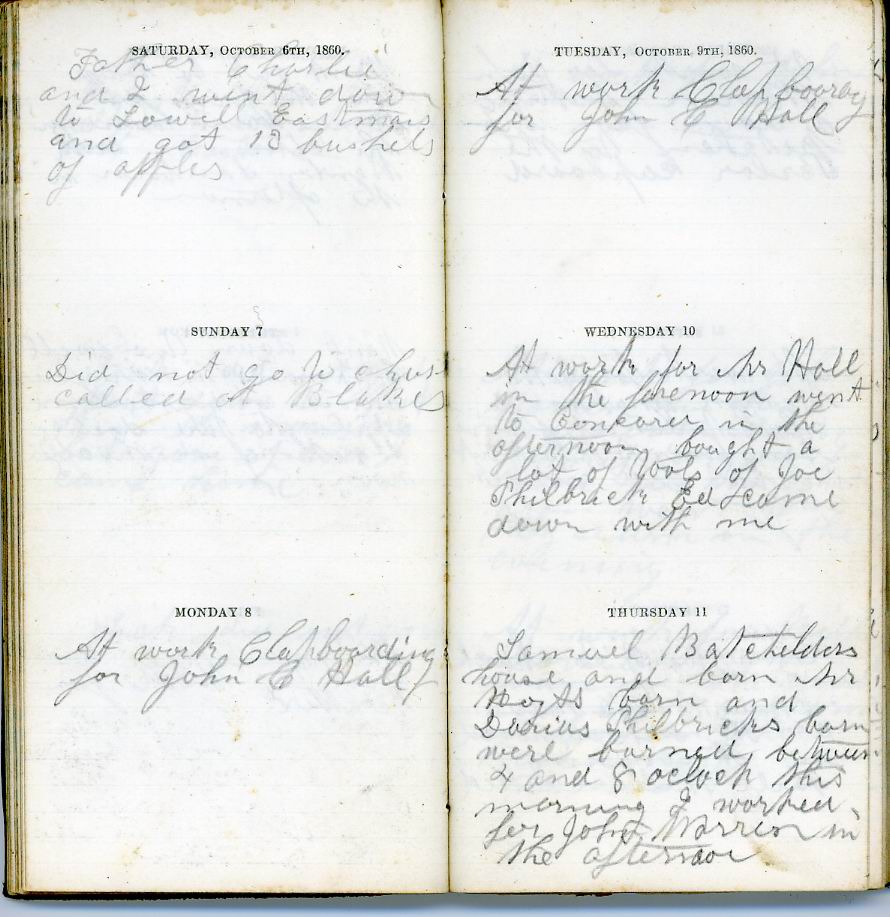 SATURDAY, OCTOBER 6TH, 1860.
Father Charlie
and I went down
to Lowell Eastmans
and got 13 bushels
of apples
SUNDAY 7
Did not go to
called at Blakes
MONDAY 8
At work Clapboarding
for John C Hall
TUESDAY, OCTOBER 9TH, 1860.
At work
for John C Hall
WEDNESDAY 10
At work for Mr Hall
in the forenoon went
to in the
afternoon bought a
lot of tools of Joe
Philbrick Ed came
down with me
THURSDAY 11
Samuel Batchelders
house and barn Mr
Hoyts barn and
Darius Philbricks barn
were burned between
4 and 8 oclock this
morning I worked
for John in
the